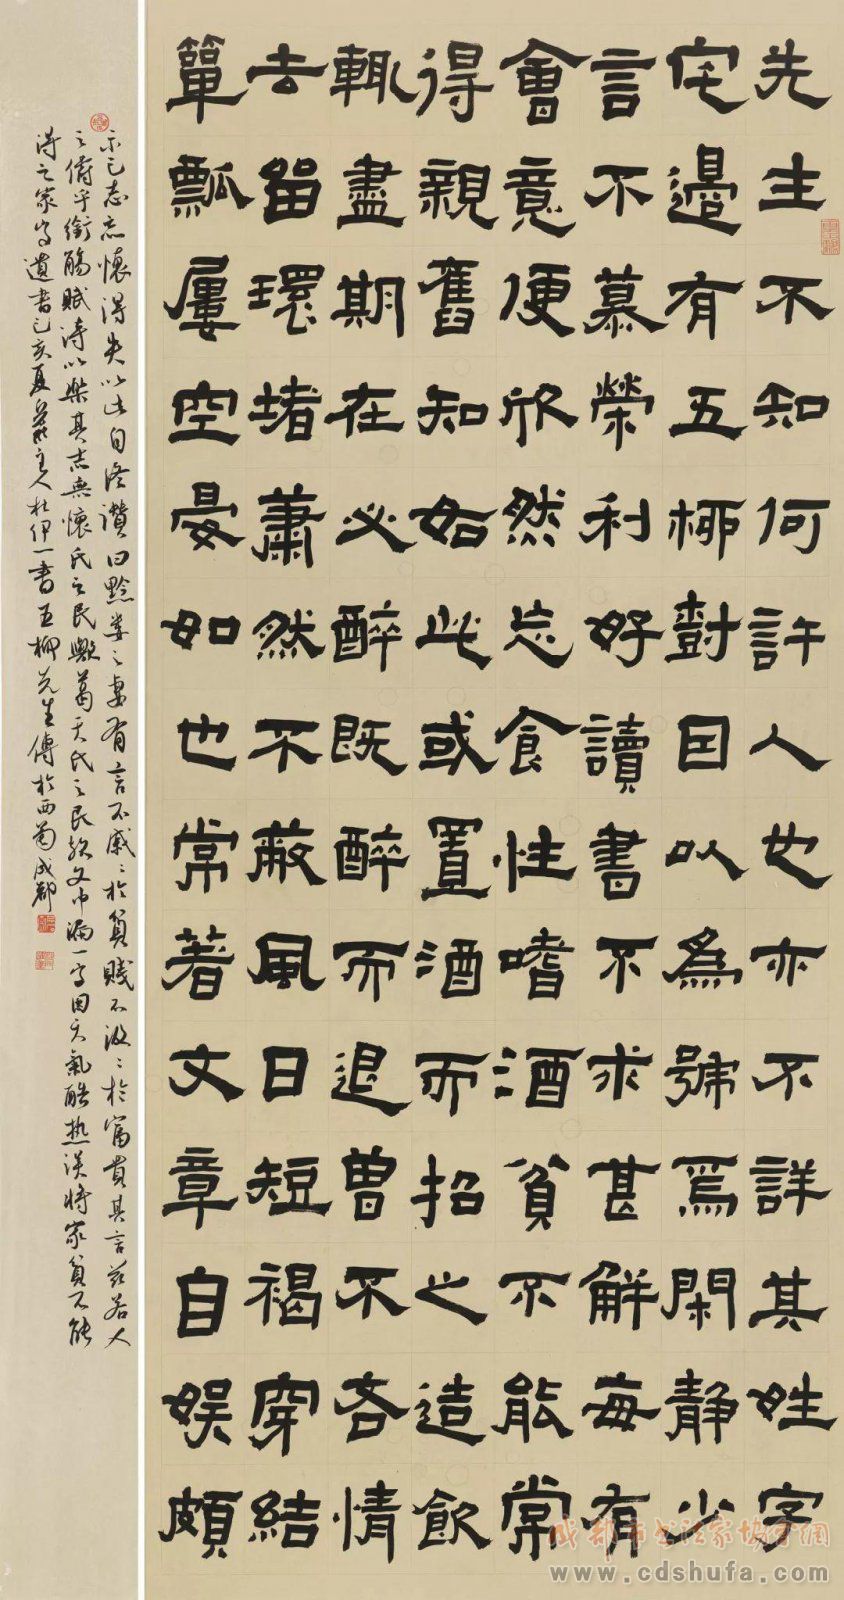 先生不知何許人也亦不詳其姓字
宅邊有五柳對因以為號焉閑靜少
言不慕榮利好讀書不求甚解每有
會意便欣然忘食性嗜酒貧不能常
得親舊知如此或置酒而招之造飲
輒盡期在必醉既醉而退曾不吝情
去留環堵蕭然不蔽風日短褐穿結
簞瓢屢空晏如也常著文章自娛頗
示己志忘懷得失以此自終讚曰黔婁之妻有言不戚〻於貧賤不汲〻於富貴其言茲若人
之儔乎銜觴賦詩以樂其志無懷氏之民歟葛天氏之民歟文中漏一字因天氣酷热誤將家貧不能
得之家字遺書己亥夏主人杜伊一書五柳先生傳於西蜀成都
成都市书法家协会网
www.cdshufa.com